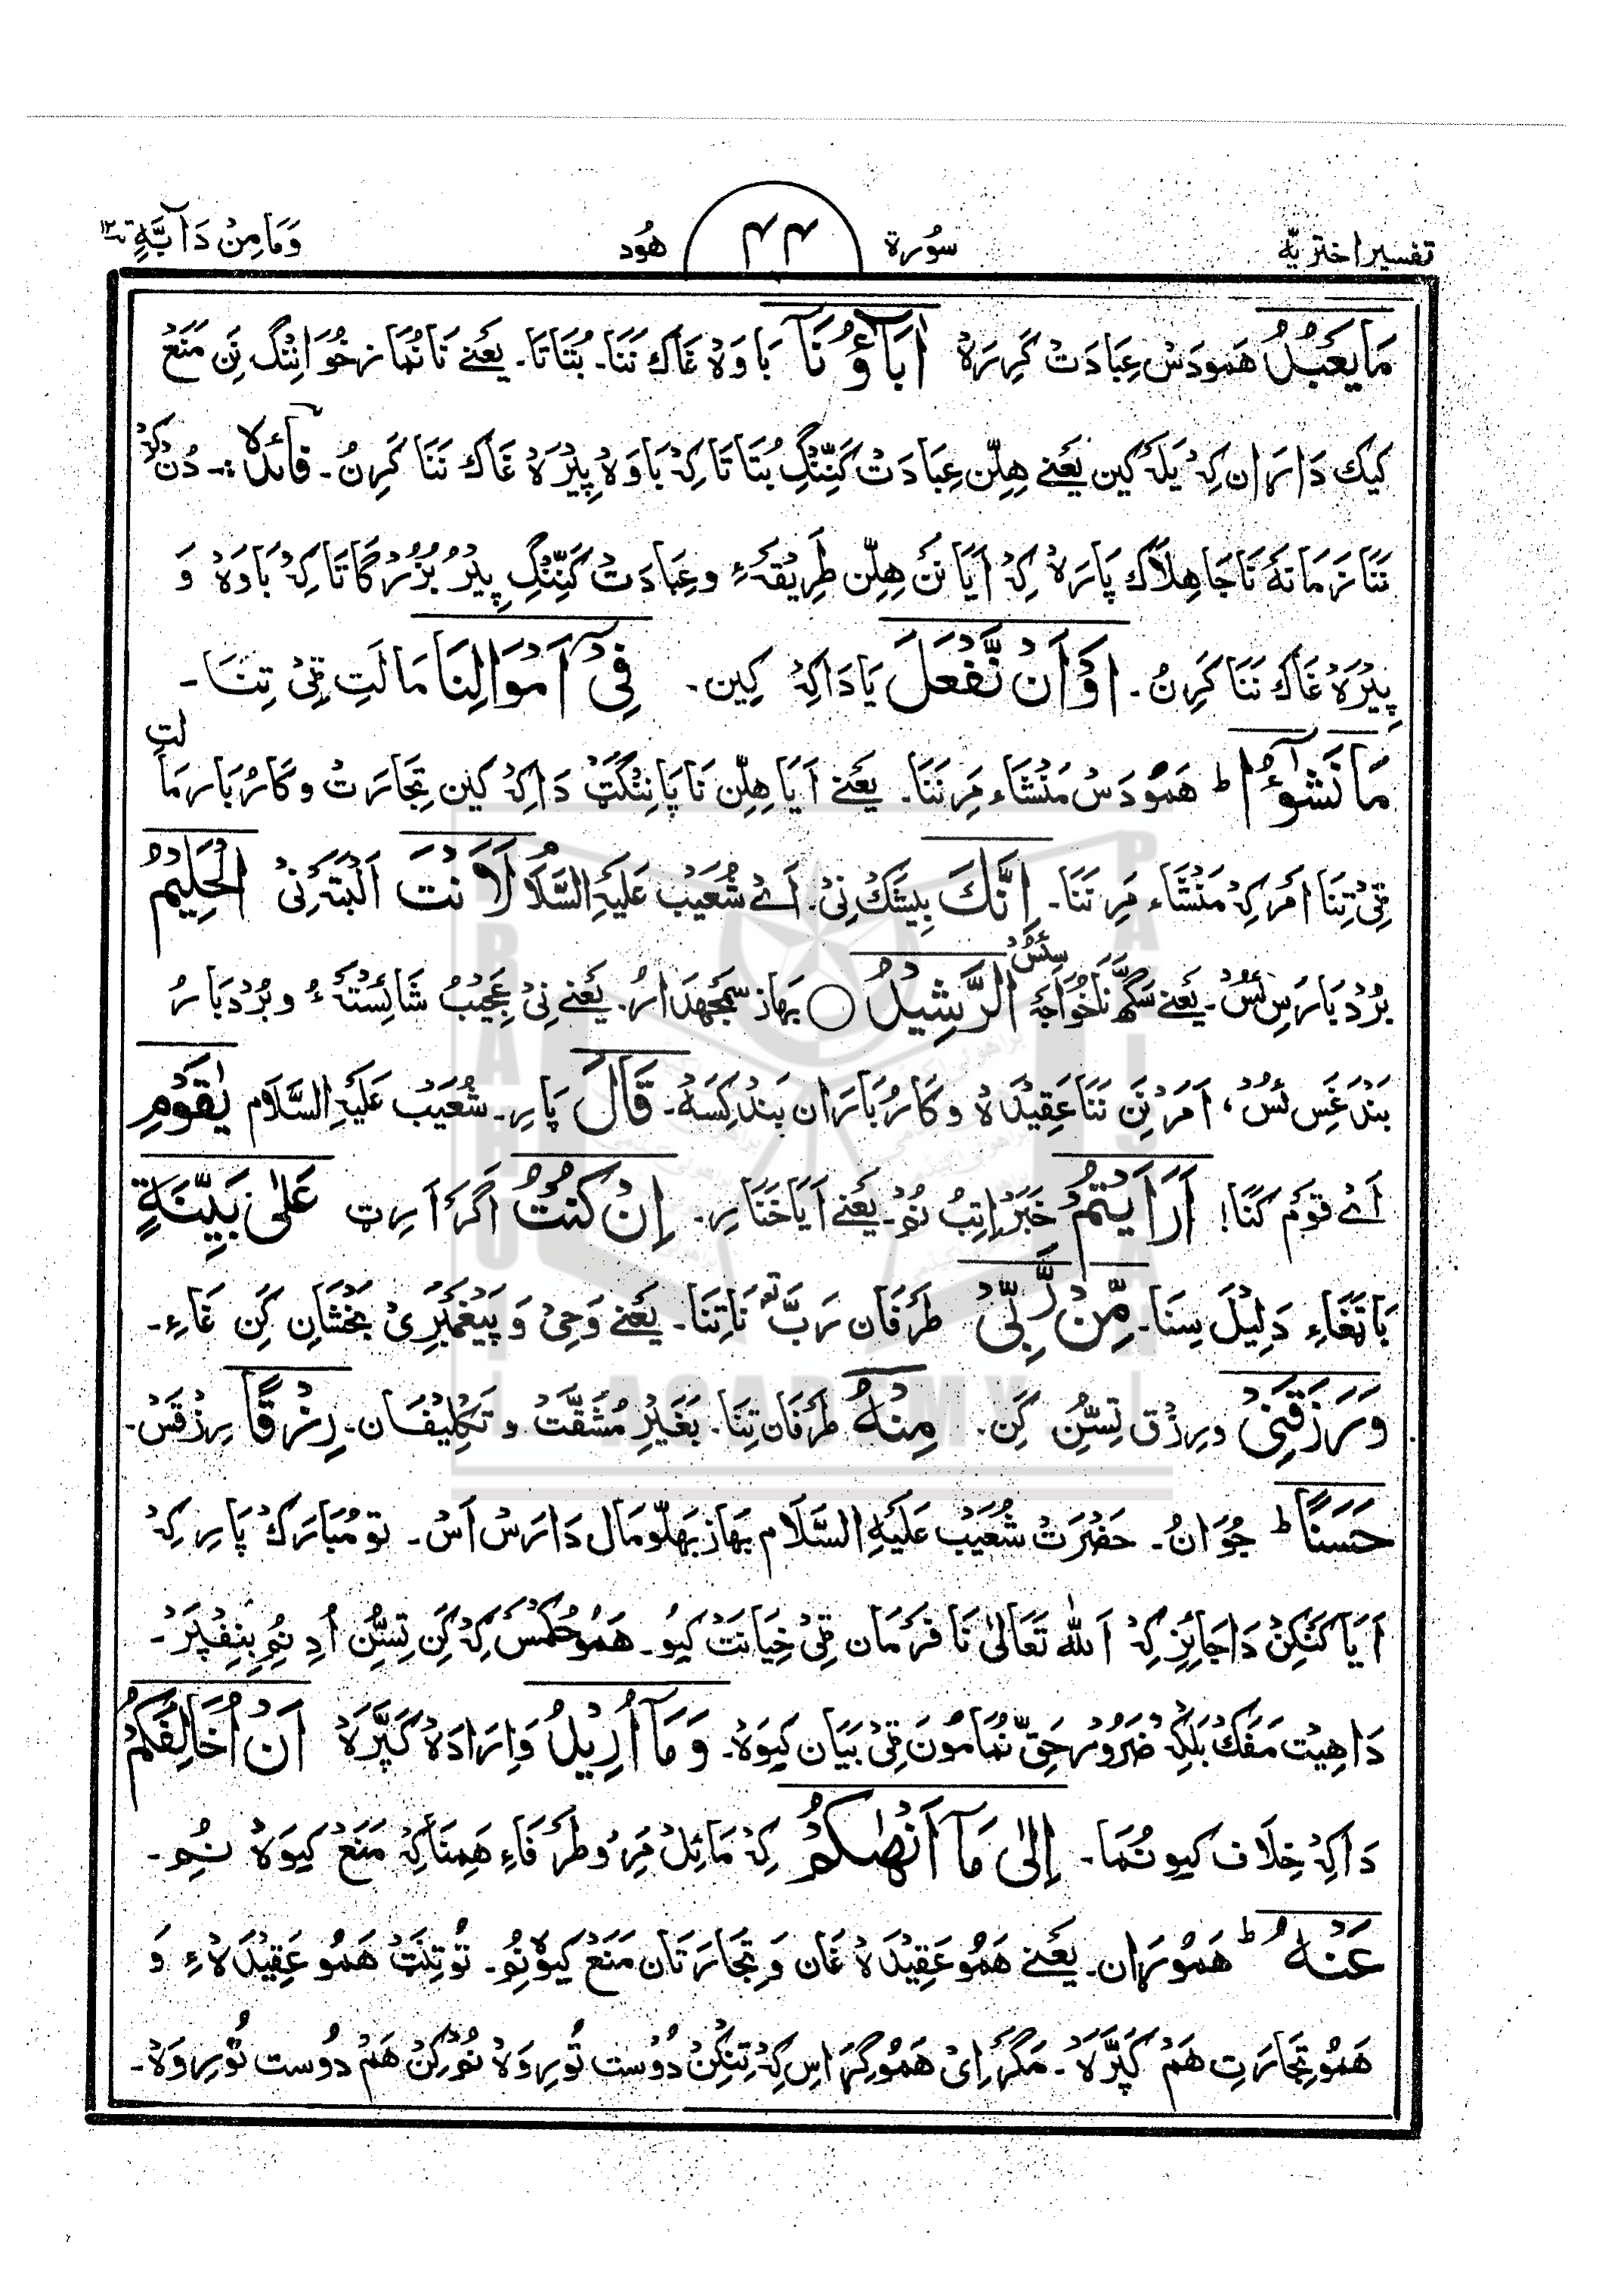 تفسیر اختریہ
سُورة
۴۴
هُود
وَمَا مِنْ دَآبَّةٍ ۱۲
مَا يَعْبُدُ هَمودَسْ عِبَادَتْ کَرِرَہْ اٰبَآؤُنَآ بَاوَہْ غَاک نَنَا۔ بُتَاتَا۔ یَعْنِے نَا نُمَاز خُوَانِنْگ نَن مَنَعْ
کیک دَارَان کِہْ یَلَہْ کین یَعْنِے هِلِّن عِبَادَتْ کَنِّنْگِ بُتَاتَا کِہْ بَاوَہْ پِیْرَہْ غَاک نَنَا کَرِنُ۔ فائدہ:۔ دُنْ کِہْ
نَنَا زَمَانَہْ نَا جَاهِلَاک پَارَہْ کِہْ اَیَا نَن هِلِّن طَرِیْقَہْءِ و عِبَادَتْ کَنِّنْگِ پِیْرُ بُزُرْگاتَا کِہْ بَاوَہْ وَ
پِیْرَہْ غَاک نَنَا کَرِنُ۔ اَوْ اَنْ نَّفْعَلَ یَا دَاکِہْ کین۔ فِیْٓ اَمْوَالِنَا مَالَتِ ٹِیْ تِنَنَا۔
مَا نَشٰٓؤُاط هَمُودَسْ مَنْشَاء مَرِ نَنَا۔ یَعْنِے اَیَا هِلِّن نَا پَانِنْگَتْ دَاکِہْ کین تِجَارَتْ و کَارُبَار مَالَتِ
ٹِیْ تِنَا اَمَر کِہْ مَنْشَاء مَرِ نَنَا۔ اِنَّكَ بِیْشَک نِیْ۔ اَےْ شُعَیْب عَلَیْہِ السَّلَام لَاَنْتَ اَلْبَتَہْ نِیْ الْحَلِيْمُ
بُرْدبَارَس ئِسُّ۔ یَعْنِے سَگھَّ نَا خُوَاجَہْ سِئسُّ الرَّشِيْدُ ○ بَهَاز سَمَجْھدَارُ۔ یَعْنِے نِیْ عَجِیْبُ شَائِسْتَہْ ءُ و بُرْدبَارُ
بَنْدَغَس ئسُّ، اَمَر نَن نَنَا عَقِیْدَہْ و کَارُبَارَان بَنْد کِسَہْ۔ قَالَ پَارِ۔ شُعَیْب عَلَیْہِ السَّلَام يٰقَوْمِ
اَےْ قَوْم کَنَا! اَرَاَيْتُمْ خَبَرْ اِتِبُ نُمْ۔ یَعْنِے اَیَا خَنَارِ۔ اِنْ كُنْتُ اَگَر اَرِٹ عَلٰى بَيِّنَةٍ
بَا تَغَاءِ دَلِیْلَ سِنَا۔ مِّنْ رَّبِّيْ طَرَفَان رَبّ تَعَ نَا تِنَا۔ یَعْنِے وَحِیْ وَ پَیْغَمْبَرِیْ بَخْشَانِ کَنِ غَاءِ۔
وَرَزَقَنِيْ و رِزْق تِسُّن کَن۔ مِنْهُ طَرَفَان تِنَا۔ بَغَیْرِ مُشَقَّتْ و تَکلِیْفَان۔ رِزْقًا رِزْقَس۔
حَسَنًاط جُوَانُ۔ حَضْرَتْ شُعَیْب عَلَیْہِ السَّلَام بَهَاز بَهَلّو مَال دَارَسْ اَسْ۔ تو مُبَارَکْ پَارِ کِہْ
اَیَا کَنْکِنْ دَا جَائِز کِہْ اَللّٰه تَعَالٰی نَا فَرْمَان ٹِیْ خِیَانَتْ کیُو۔ هَمُو حُکْمَسْ کِہْ کَن تِسُّن اُدِ نُم بِنِفِیَرْ۔
دَاهِیْت مَفَکْ بَلْکِہْ ضَرُوْر حَقّ نُمَا مُوْنَ ٹِیْ بَیَان کِیوَہْ۔ وَمَآ اُرِيْدُ وَ اِرَادَہْ کَپَّرَہْ اَنْ اُخَالِفَكُمْ
دَاکِہْ خِلَاف کیو نُمَا۔ اِلٰى مَآ اَنْهٰىكُمْ کِہْ مَائِلْ مَرِوُ طَرَفَاءِ هَمِنَا کِہْ مَنَعْ کیوَہْ نُم۔
عَنْهُط هَمُورَان۔ یَعْنِے هَمُو عَقِیْدَہْ غَان وَ تِجَارَتَان مَنَعْ کیوہْ نُم۔ تُوْ تِنَتْ هَمُو عَقِیْدَہْءِ وَ
هَمُو تِجَارَتِ هَمْ کَپَّرَہْ۔ مَگَر اِیْ هَمُو گِرَاس کِہْ تِنْکِنْ دُوْست تُوْرِوَہْ نُمْ کِنْ هَمْ دُوست تُوْرِوَہْ۔